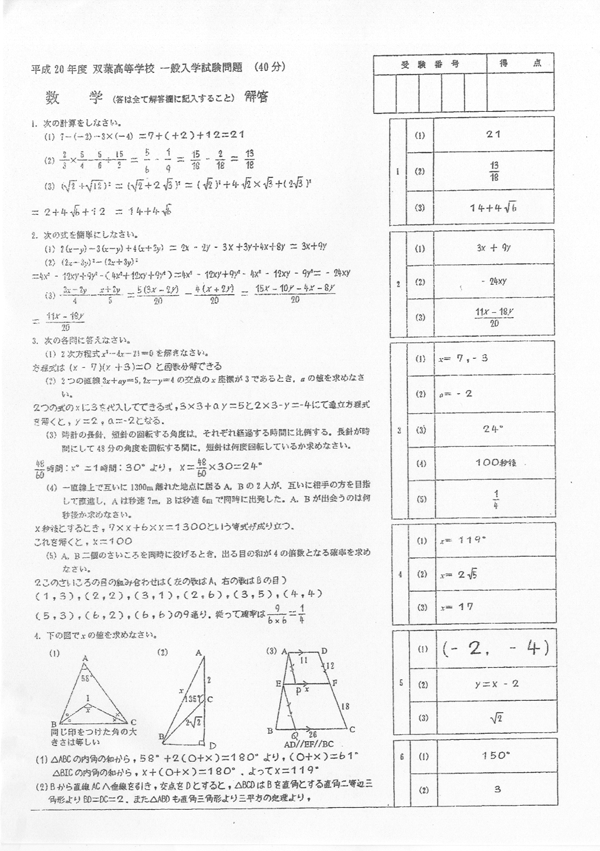 平成20年度 双葉高等学校 一般入学試験問題 (40分)
数 学 (答は全て解答欄に記入すること) 解答
1. 次の計算をしなさい。
(1) 7-(-2)-3×(-4) =7+(+2)+12=21
(2) 2/3×5/4-5/6÷15/2 = 5/6 - 1/9 = 15/18 - 2/18 = 13/18
(3) (√2+√12)² = (√2+2√3)² = (√2)²+4√2×√3+(2√3)²
= 2+4√6+12 = 14+4√6
2. 次の式を簡単にしなさい。
(1) 2(x-y)-3(x-y)+4(x+2y) = 2x - 2y - 3x+3y+4x+8y = 3x+9y
(2) (2x-3y)²-(2x+3y)²
=4x² - 12xy+9y²-(4x²+12xy+9y²)=4x² - 12xy+9y² - 4x² - 12xy - 9y²= - 24xy
(3) 3x-2y/4 - x+2y/5 = 5(3x-2y)/20 - 4(x+2y)/20 = 15x-10y-4x-8y/20
= 11x-18y/20
3. 次の各問に答えなさい。
(1) 2次方程式x²-4x-21=0を解きなさい。
方程式は (x - 7)(x +3)=0 と因数分解できる
(2) 2つの直線3x+ay=5,2x-y=4の交点のx座標が3であるとき、aの値を求めなさ
い。
2つの式のxに3を代入してできる式,3×3+ay=5と2×3-y=4にて連立方程式
を解くと,y=2,a=-2となる.
(3) 時計の長針、短針の回転する角度は、それぞれ経過する時間に比例する。長針が時
間にして48分の角度を回転する間に、短針は何度回転しているか求めなさい。
48/60時間:x°=1時間:30°より, x=48/60×30=24°
(4) 一直線上で互いに1300m離れた地点に居るA、Bの2人が、互いに相手の方を目指
して直進し、Aは秒速7m、Bは秒速6mで同時に出発した。A、Bが出会うのは何
秒後か求めなさい。
x秒後とするとき,7×x+6×x=1300という等式が成り立つ.
これを解くと,x=100
(5) A、B二個のさいころを同時に投げるとき、出る目の和が4の倍数となる確率を求め
なさい。
2このさいころの目の組み合わせは(左の数はA,右の数はBの目)
(1,3),(2,2),(3,1),(2,6),(3,5),(4,4)
(5,3),(6,2),(6,6)の9通り.従って確率は9/6×6=1/4
4. 下の図でxの値を求めなさい。
(1)
A
58°
I
x
B
C
同じ印をつけた角の大
きさは等しい
(2)
A
2
x
135°
C
2√2
B
D
(3)
A
D
11
12
E
F
P
x
18
B
Q
26
C
AD//EF//BC
(1) △ABCの内角の和から,58°+2(○+×)=180°より,(○+×)=61°
△BICの内角の和から,x+(○+×)=180°.よってx=119°
(2) Bから直線ACへ垂線を引き,交点をDとすると,△BCDはBを直角とする直角二等辺三
角形よりBD=DC=2.また△ABDも直角三角形より三平方の定理より,
受験番号
得点
1
(1) 21
(2) 13/18
(3) 14+4√6
2
(1) 3x + 9y
(2) - 24xy
(3) 11x-18y/20
3
(1) x= 7, - 3
(2) a= - 2
(3) 24°
(4) 100秒後
(5) 1/4
4
(1) x= 119°
(2) x= 2√5
(3) x= 17
5
(1) (- 2, - 4)
(2) y=x - 2
(3) √2
6
(1) 150°
(2) 3